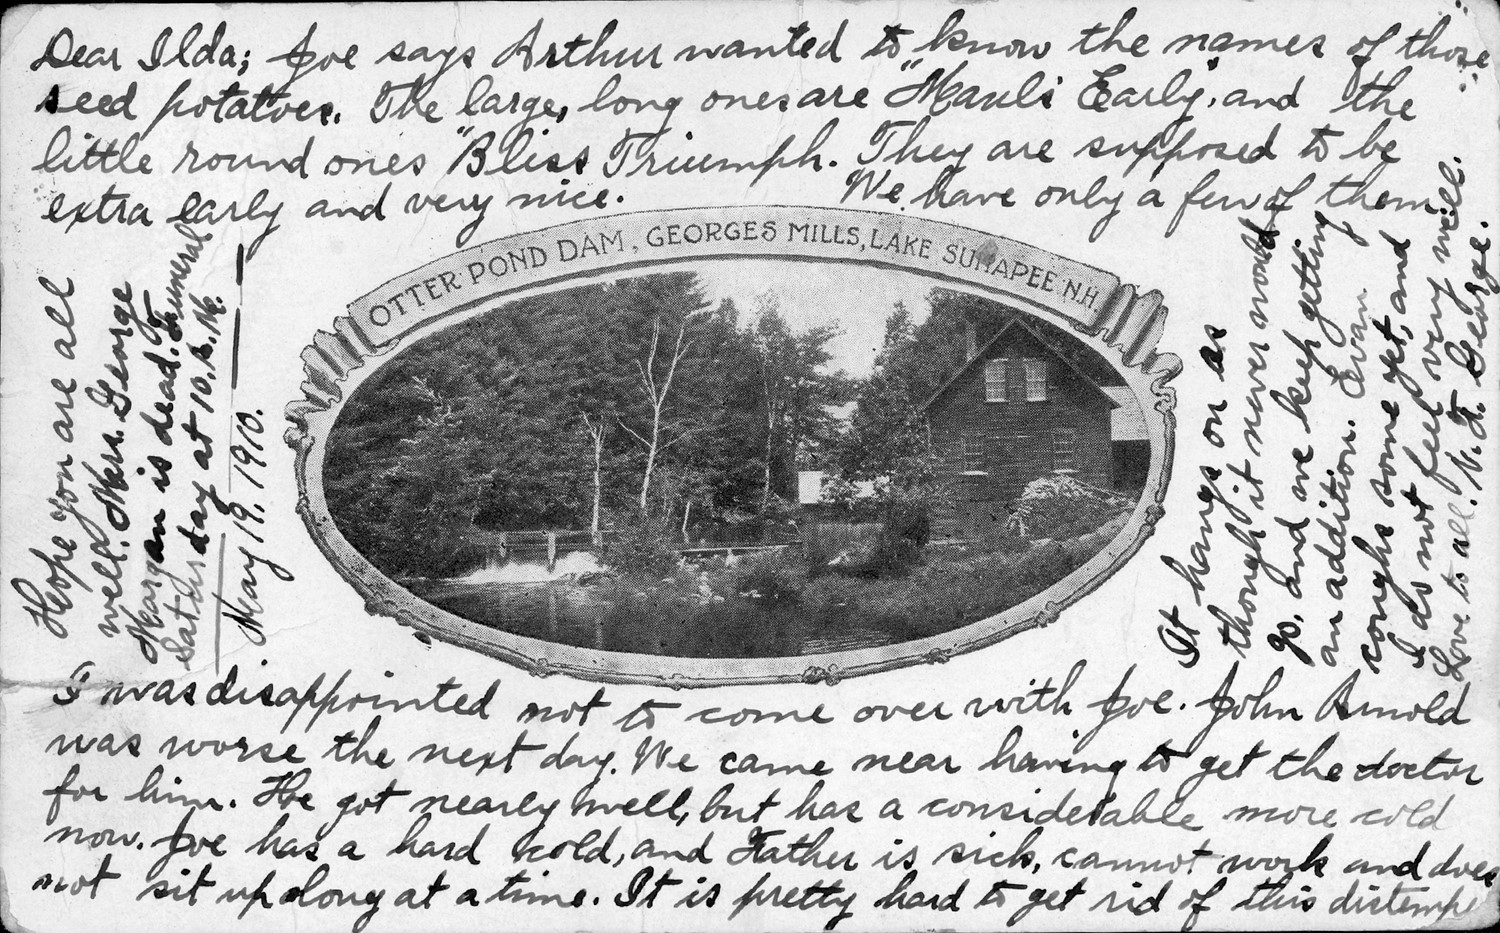 Dear Ilda; Joe says Arthur wanted to know the names of those
seed potatoes. The large, long ones are "Maul's Early", and the
little round ones "Bliss Triumph. They are supposed to be
extra early and very nice. We have only a few of them.
OTTER POND DAM, GEORGES MILLS, LAKE SUNAPEE N.H.
I was disappointed not to come over with Joe. John Arnold
was worse the next day. We came near having to get the doctor
for him. He got nearly well, but has a considerable more cold
now. Joe has a hard cold, and Father is sick, cannot work and does
not sit up long at a time. It is pretty hard to get rid of this distemper
It hangs on as
though it never would
go, and we keep getting
an addition. Evan
coughs some yet, and
I do not feel very well.
Love to all. N. F. George.
Hope you are all
well. Mrs. George
Morgan is dead. Funeral
Saturday at 10. A. M.
May 19, 1910.